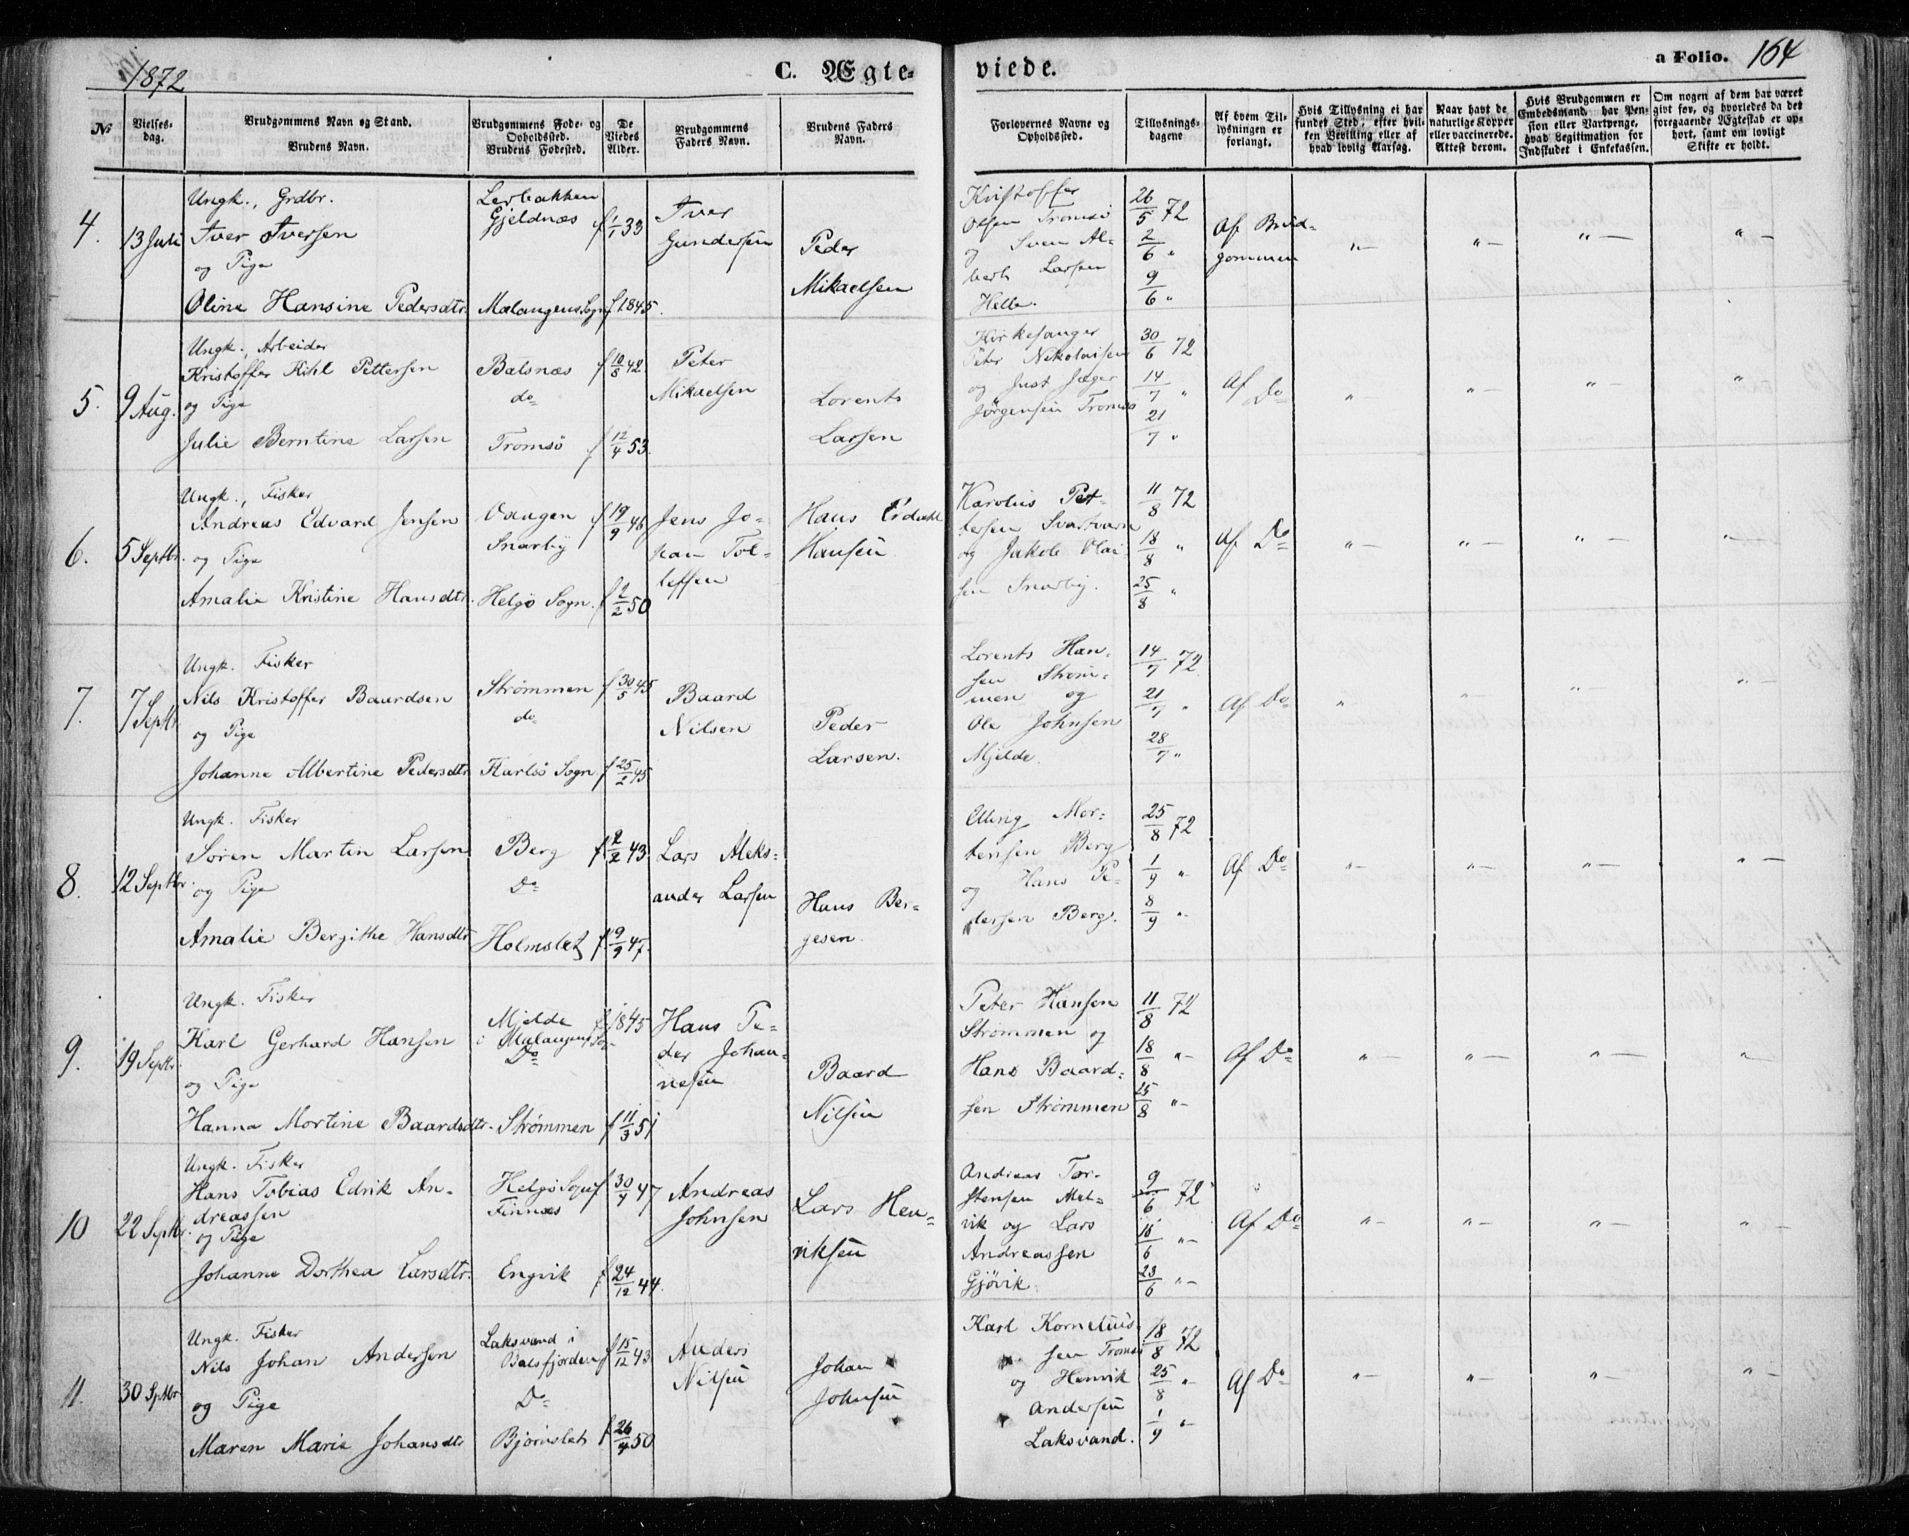 1872
C. Ægte-
viede.
a Folio. 164
No
Vielses-
dag.
Brudgommens Navn og Stand.
Brudens Navn.
Brudgommens Føde- og
Opholdssted.
Brudens Fødested.
De
Viedes
Alder.
Brudgommens
Faders Navn.
Brudens Faders
Navn.
Forlovernes Navne og
Opholdssted.
Tillysnings-
dagene
Af hvem Til-
lysningen er
forlangt.
Hvis Tillysning ei har
fundet Sted, efter hvil-
ken Bevilling eller af
hvad lovlig Aarsag.
Naar havt de
naturlige Kopper
eller vaccinerede.
Attest derom.
Hvis Brudgommen er
Embedsmand, har Pen-
sion eller Vartpenge,
hvad Legitimation for
Indskudet i Enkekassen.
Om nogen af dem har været
gift før, og hvorledes da det
foregaaende Ægteskab er op-
hørt, samt om lovligt
Skifte er holdt.
4.
13 Juli
Ungk., Grdbr.
Iver Iversen
og Pige
Oline Hansine Pedersdtr.
Lerbakken
Gjeldnæs
Malangens Sogn
f 1/1 33
f 1845.
Iver
Gundersen
Peder
Mikaelsen
Kristoffer
Olsen Tromsö
og Sven Al-
bert Larsen
Hella.
26/5 72
2/6 "
9/6 "
Af Brud-
gommen
" —
" —
" —
" —
5.
9 Aug.
Ungk., Arbeider
Kristoffer Kihl Pettersen
og Pige
Julie Berntine Larsen
Balsnæs
do
Tromsö
f 10/8 42.
f 12/4 53.
Peter
Mikaelsen
Lorents
Larsen
Kirkesanger
Peter Nikolaisen
og Just Jæger
Jörgensen Tromsö
30/6 72
14/7 "
21/7 "
Af Do
" —
" —
" —
"
6.
5 Septbr.
Ungk., Fisker
Andreas Edvard Jensen
og Pige
Amalie Kristine Hansdtr.
Oxungen
Snarby
Helgö Sogn.
f 19/9 46
f 2/2 50
Jens Jo-
han Tol-
lefsen
Hans Eidahl
Hansen
Karolius Pet-
tersen Svartvavn
og Jakob Olai-
sen Snarby.
11/8 72
18/8 "
25/8 "
Af Do
" —
" —
" —
" —
7.
7 Septbr.
Ungk. Fisker
Nils Kristoffer Baardsen
og Pige
Johanne Albertine Pedersdtr.
Strømmen
do
Karlsö Sogn
f 30/5 45
f 25/2 45
Baard
Nilsen
Peder
Larsen.
Lorents Han-
sen Strøm-
men og
Ole Johnsen
Mjelde.
14/7 72.
21/7 "
28/7 "
Af Do
"
" —
" —
" —
8.
12 Septbr.
Ungk. Fisker
Sören Martin Larsen
og Pige
Amalie Bergithe Hansdtr
Berg
Do
Holmslet
f 2/2 43
f 9/9 47.
Lars Aleks-
ander Larsen
Hans Ber-
gesen.
Elling Mor-
tensen Berg
og Hans Pe-
dersen Berg.
25/8 72
1/9 "
8/9 "
Af Do
" —
" —
" —
" —
9.
19 Septbr.
Ungk. Fisker
Karl Gerhard Hansen
og Pige
Hanna Mortine Baardsdtr.
Mjelde
i Malangens Sogn
Do
Strømmen
f 1845
f 11/3 51
Hans Pe-
der Johan-
nesen
Baard
Nilsen
Peter Hansen
Strømmen og
Hans Baard-
sen Strømmen
11/8 72
18/8 "
25/8 "
Af Do
" —
" —
" —
" —
10
22 Septbr.
Ungk. Fisker
Hans Tobias Edrik An-
dreassen
og Pige
Johanne Dorthea Larsdtr.
Helgö Sogn
Finnæs
Engvik
f 30/4 47
f 24/12 44.
Andreas
Johnsen
Lars Hen-
riksen
Andreas Tor-
stensen Mel-
vik og Lars
Andreassen
Gjövik
9/6 72
16/6 "
23/6 "
Af Do
" —
" —
" —
" —
11.
30 Sptbr.
Ungk. Fisker
Nils Johan Andersen
og Pige
Maren Marie Johansdtr
Laksvand i
Balsfjorden
Do
Bjørnslet
f 15/12 43.
f 26/4 50
Anders
Nilsen
Johan
Johnsen
Karl Kornelius-
sen Tromsö
og Henrik
Andersen
Laksvand.
18/8 72
25/8 "
1/9 "
Af Do
" —
" —
" —
" —